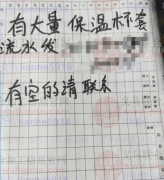 有大量保温杯套
流水发
有空的请联系